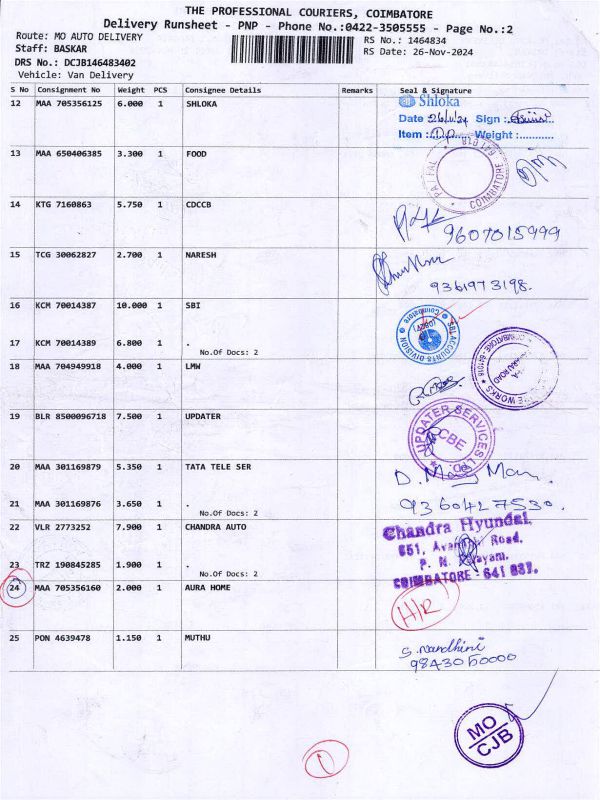 THE PROFESSIONAL COURIERS, COIMBATORE
Delivery Runsheet - PNP - Phone No.:0422-3505555 - Page No.:2
Route: MO AUTO DELIVERY
RS No.: 1464834
Staff: BASKAR
RS Date: 26-Nov-2024
DRS No.: DCJB146483402
Vehicle: Van Delivery
S No Consignment No Weight PCS Consignee Details Remarks Seal & Signature
12 MAA 705356125 6.000 1 SHLOKA
Shloka
Date :26/11/24 Sign :
Item : D.P. Weight :...........
13 MAA 650406385 3.300 1 FOOD
COIMBATORE
14 KTG 7160863 5.750 1 CDCCB
9607015999
15 TCG 30062827 2.700 1 NARESH
9361973198.
16 KCM 70014387 10.000 1 SBI
ACCOUNTS DIVISION
Coimbatore
17 KCM 70014389 6.800 1 .
No.Of Docs: 2
18 MAA 704949918 4.000 1 LMW
19 BLR 8500096718 7.500 1 UPDATER
UPDATER SERVICES LTD.
CBE
20 MAA 301169879 5.350 1 TATA TELE SER
21 MAA 301169876 3.650 1 .
No.Of Docs: 2
9360427530.
22 VLR 2773252 7.900 1 CHANDRA AUTO
Chandra Hyundai,
651, Road,
COIMBATORE - 641 037.
23 TRZ 190845285 1.900 1 .
No.Of Docs: 2
24 MAA 705356160 2.000 1 AURA HOME
H/R
25 PON 4639478 1.150 1 MUTHU
S. Nandhini
9843050000
MO
CJB
1